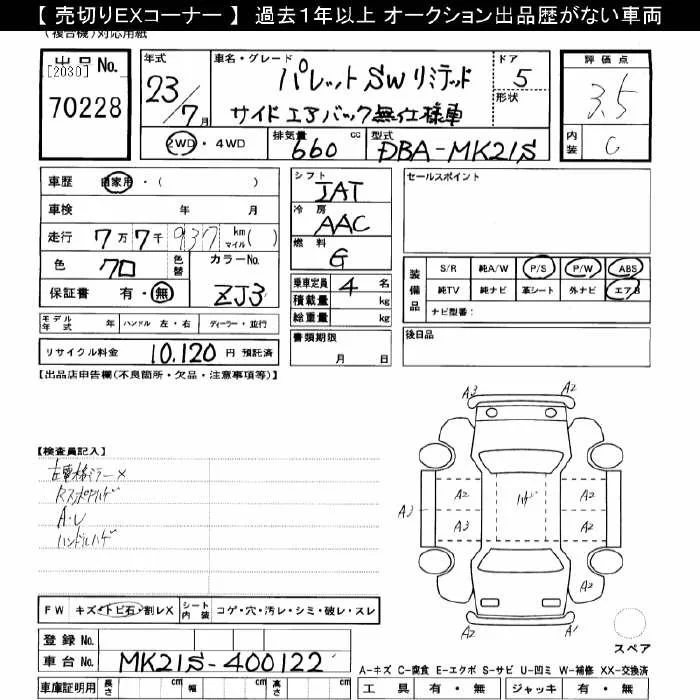 【 売切りEXコーナー 】 過去1年以上 オークション出品歴がない車両
(複合機)対応用紙
出品No.
[2030]
70228
年式
23/7月
車名・グレード
パレットSWリミテッド
サイドエアバック無仕様車
ドア
5
形状
評価点
3.5
内装
C
2WD・4WD
排気量
660 cc
型式
DBA-MK21S
車歴 自家用・( )
車検 年 月
走行 7万7千937 km マイル( )
色 クロ 色替 カラーNo.
ZJ3
保証書 有・無
モデル年式 年 ハンドル 左・右 ディーラー・並行
リサイクル料金 10,120 円 預託済
シフト
IAT
冷房
AAC
燃料
G
乗車定員 4 名
積載量 kg
総重量 kg
書類期限
月 日
セールスポイント
装備品
S/R 純A/W P/S P/W ABS
純TV 純ナビ 革シート 外ナビ エアB
ナビ型番:
後日品
【出品店申告欄(不良箇所・欠品・注意事項等)】
【検査員記入】
左電格ミラー×
A・U
ハンドルハゲ
A3 A2
A2 A2
A3 A3 A2
ハゲ
A2
A2 A1
スペア
FW キズ・トビ石・割レX シート内装 コゲ・穴・汚レ・シミ・破レ・スレ
登録No.
車台No. MK21S-400122
車庫証明用 長さ cm 幅 cm 高さ cm
A-キズ C-腐食 E-エクボ S-サビ U-凹ミ W-補修 XX-交換済
工具 有・無 ジャッキ 有・無